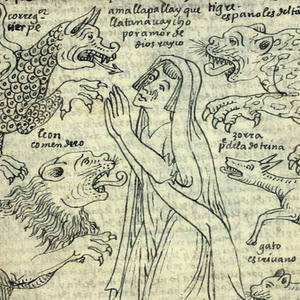 correg.or
amallapallay que
llatanauaycho
por amor de
dios rayco
tigre
españoles del ta
leon
comendero
zorra
p.e dela dotrina
gato
escriuano